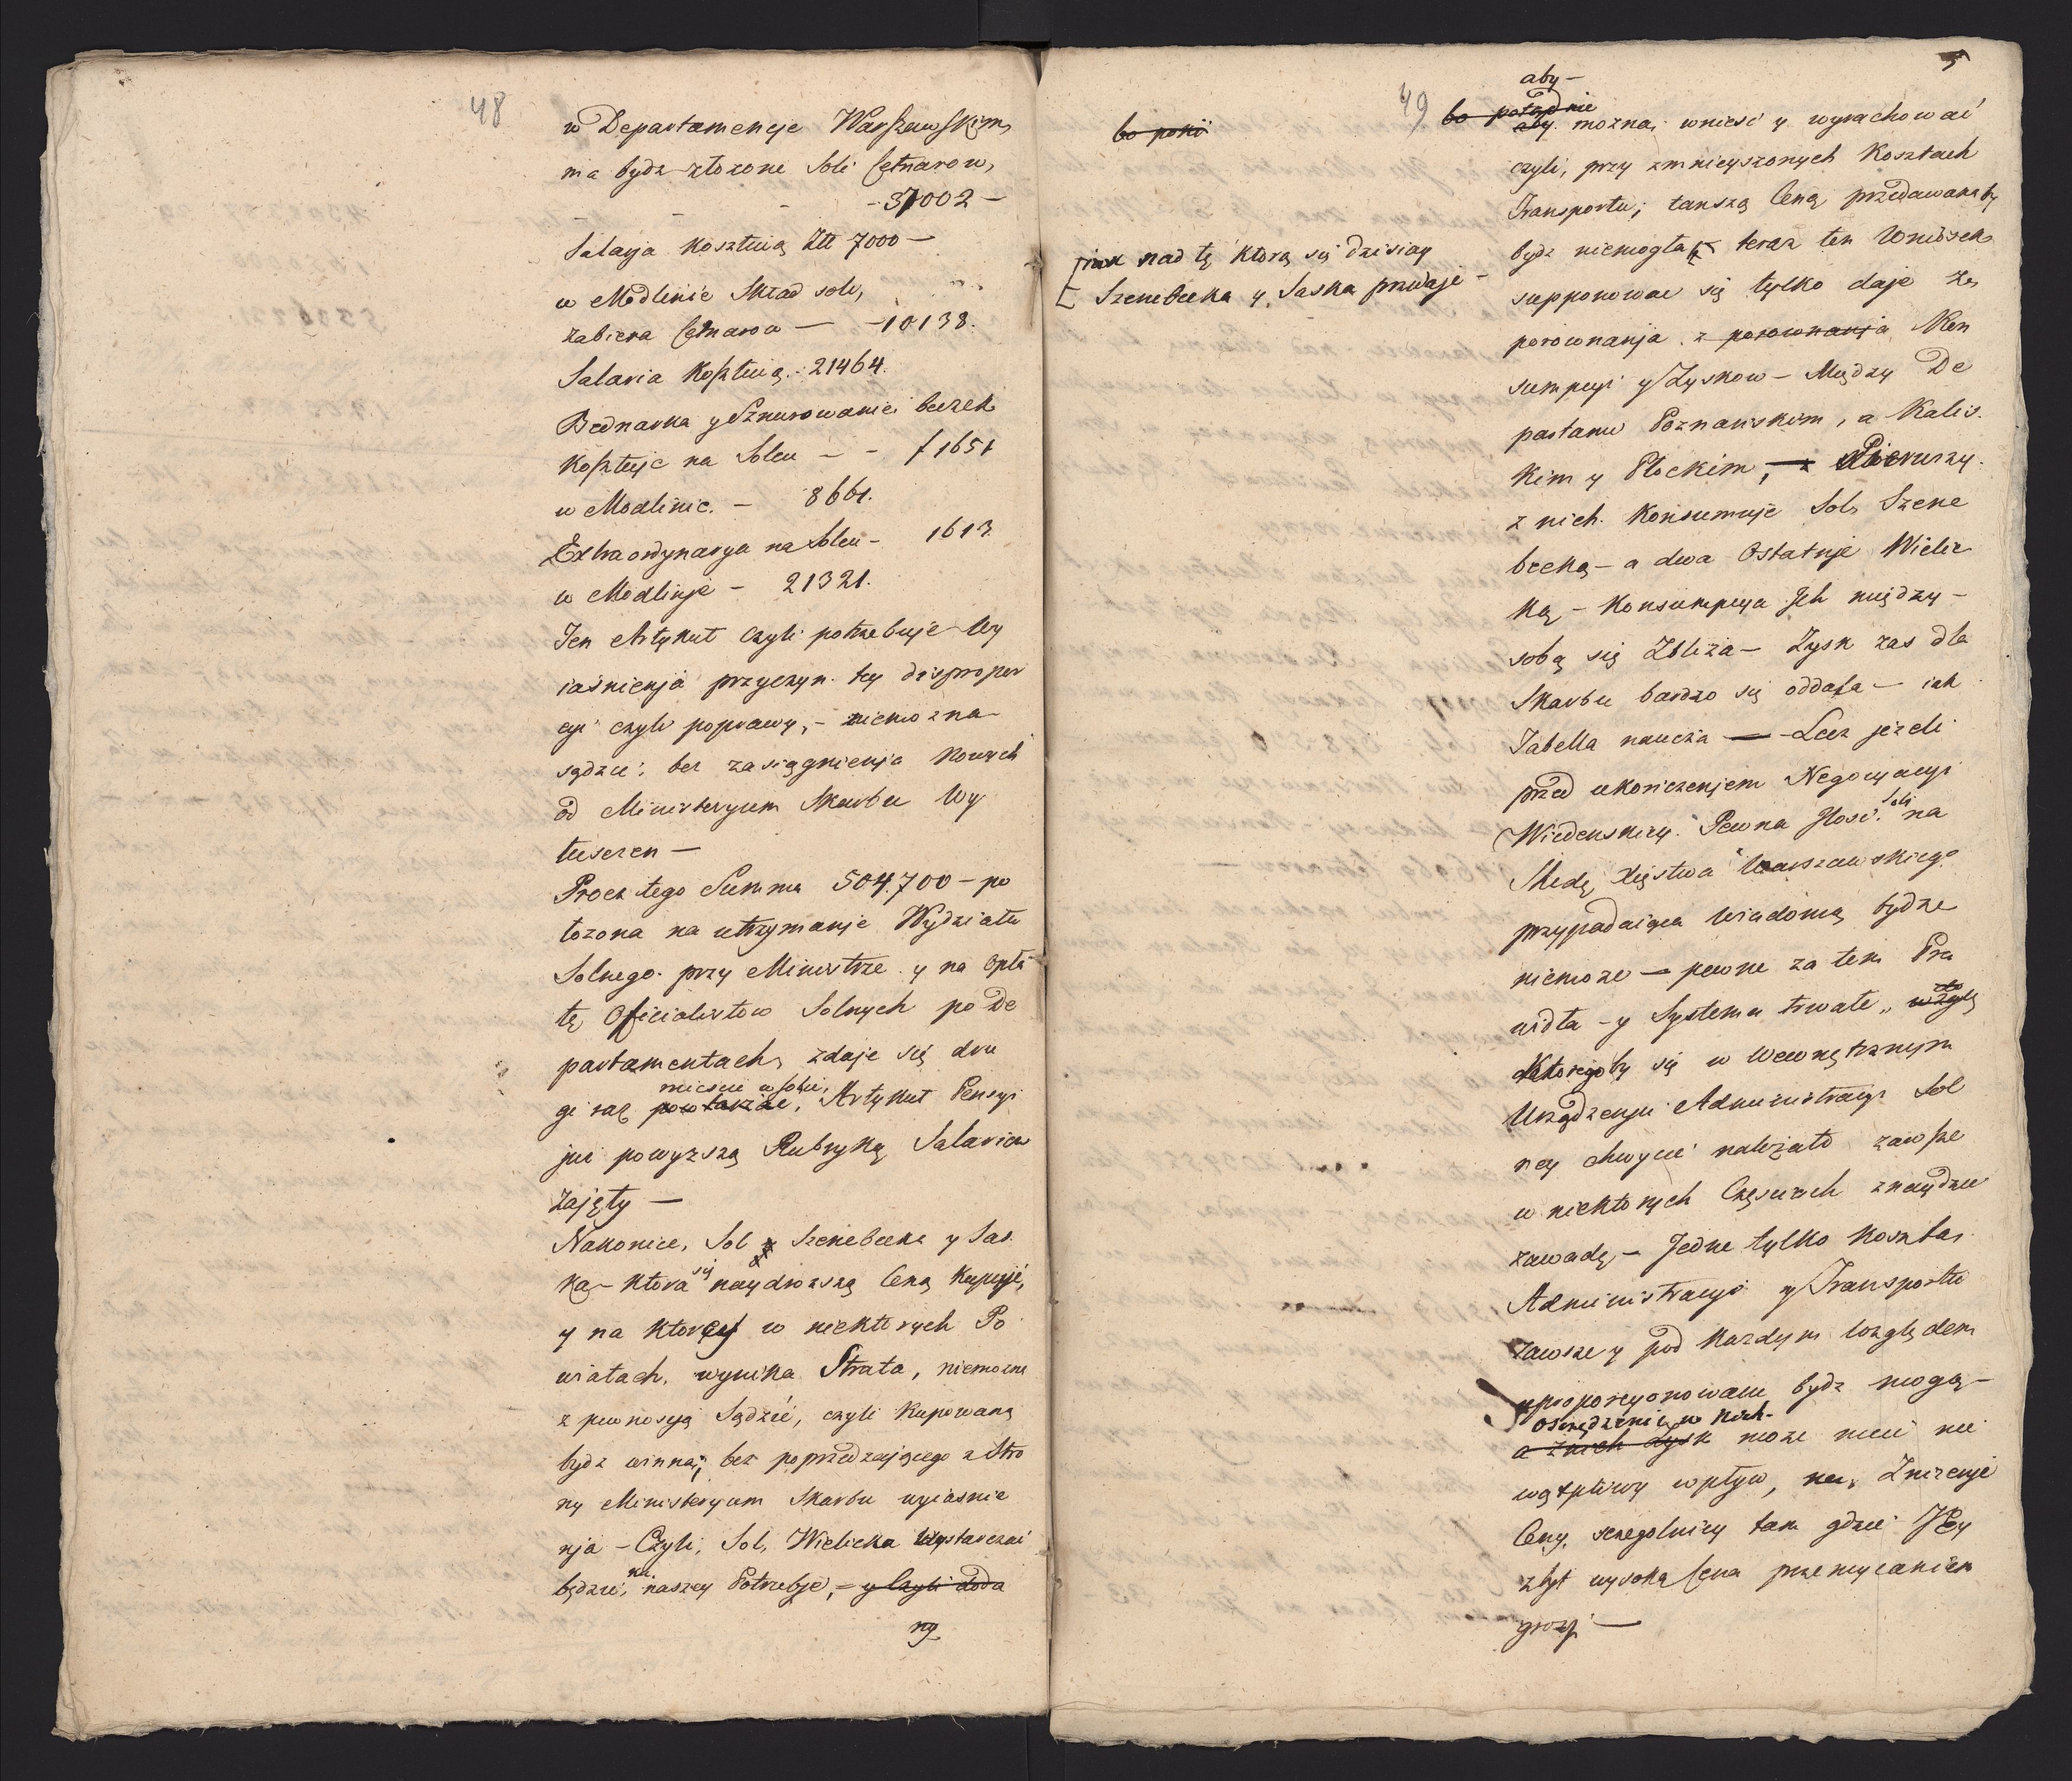 48
w Departamencje Warszawskim,
ma bydz złozone Soli Cetnarow,
- 37002 -
Salarja kosztuią Złł 7000 -
w Modlinie Skład soli,
zabiera Cetnarow - - 10138.
Salaria Kosztuią. 21464.
Bednarka y Sznurowanie beczek
Kosztuje na Solcu - - f 1651
w Modlinie. - 8661.
Extraordynarya na Solcu - 1613
w Modlinje - 21321.
Ten Artykuł czyli potrzebuje Wy
iaśnienja przyczyn tey dispropor
cyi czyli poprawy, - niemozna
sądzic; bez zasiągnienja nowych
od Ministeryum Skarbu Wy
tuszczen -
Procz tego Summa 504.700 - po
łozona na utrzymanje Wydziału
Solnego przy Ministrze y na opła
tę Oficialistow Solnych po De
partamentach, zdaje się dru
miescic w sobie,
gi raz powtarzac, Artykuł Pensyi
juz powyzszą Rubryką Salariow
zajęty -
Nakoniec, Sol Szenebecka y Sas
ka - Ktora się naydrozszą Ceną Kupuje,
y na ktorey w niektorych Po
wiatach, wynika Strata, niemozna
z pewnoscią Sądzić, czyli Kupowaną
bydz winna; bez poprzedzającego z Stro
ny Ministeryum Skarbu wyiasnie
nja - Czyli, Sol, Wielicka Wystarczac
będzie, na naszey Potrzebje, - y Czyli doda
ng
5
49
bo poki
aby -
bo potąd nie
aby mozna; wniesc y wyrachowac
czyli, przy zmnieyszonych Kosztach
Transportu; tanszą Ceną przedawana by
[nad tę ktorą się dzisiay
[Szenebecka y Saska przedaje -
bydz niemogła teraz ten Wniosek
supponowac się tylko daje ze
porownanja z porownanja Kon
sumpcyi y Zyskow - Między De
partame Poznanskim, a Kalis.
kim y Płockim, - Pierwszy.
z nich. Konsumuje Sol, Szene
becką - a dwa Ostatnje Wielic
ką - Konsumpcya Ich między -
sobą się Zbliża - Zysk zas dla
Skarbu bardzo się oddala - iak
Tabella naucza - Lecz jezeli
przed ukonczenjem Negocyacyi
Wiedenskiey. Pewna Ilosc. Soli na
Xięstwa Warszawskiego
przypadaiąca Wiadomą bydze
niemoze - pewne za tem Pra
widła - y Systema trwałe,
ktoregoby się w Wewnętrznym
Urządzenju Administracyi Sol
ney chwycic nalezało zawsze
w niektorych Częsciach znaydzie
zawadę - Jedne tylko Koszta
Administracyi y Transportu
zawsze y pod kazdym względem
uproporcyonowane bydz mogą -
oszczędzenie w nich -
a z nich zysk moze miec nie
wątpliwy wpływ, na, Znizenje
Ceny, szczegolniey tam gdzie Jey
zbyt wysoka Cena przemycaniem
grozi -